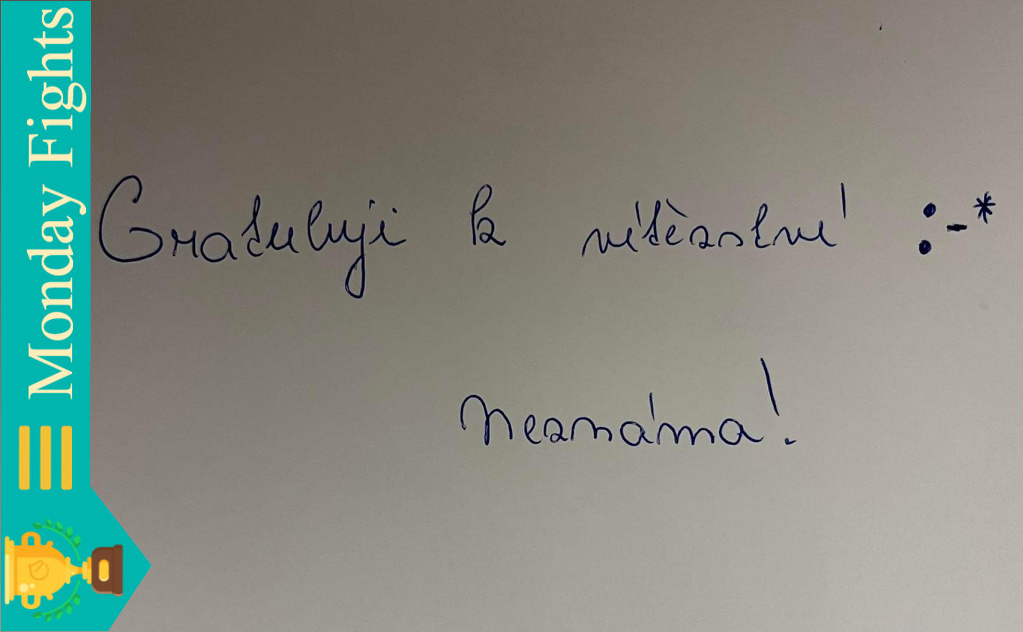 Monday Fights
Gratuluji k vítězství :-*
Neznámá!